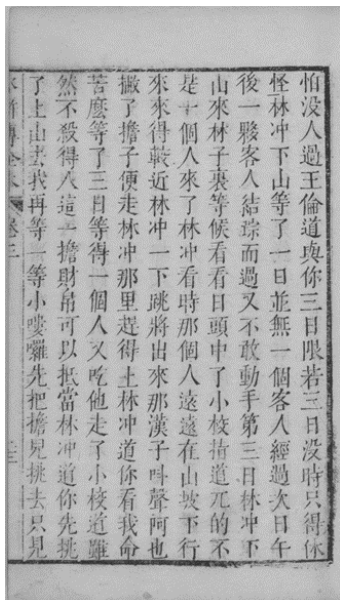 怕没人過王倫道與你三日限若三日没時只得休
怪林冲下山等了一日並無一個客人經過次日午
後一夥客人結踪而過又不敢動手第三日林冲下
山來林子裏等候看看日頭中了小校指道兀的不
是一個人來了林冲看時那個人遠遠在山坡下行
來來得較近林冲一下跳將出來那漢子呌聲阿也
撇了擔子便走林冲那里赶得上林冲道你看我命
苦麽等了三日等得一個人又吃他走了小校道雖
然不殺得人這一擔財帛可以抵當林冲道你先挑
了上山去我再等一等小嘍囉先把擔兒挑去只見
水滸傳全本 卷三